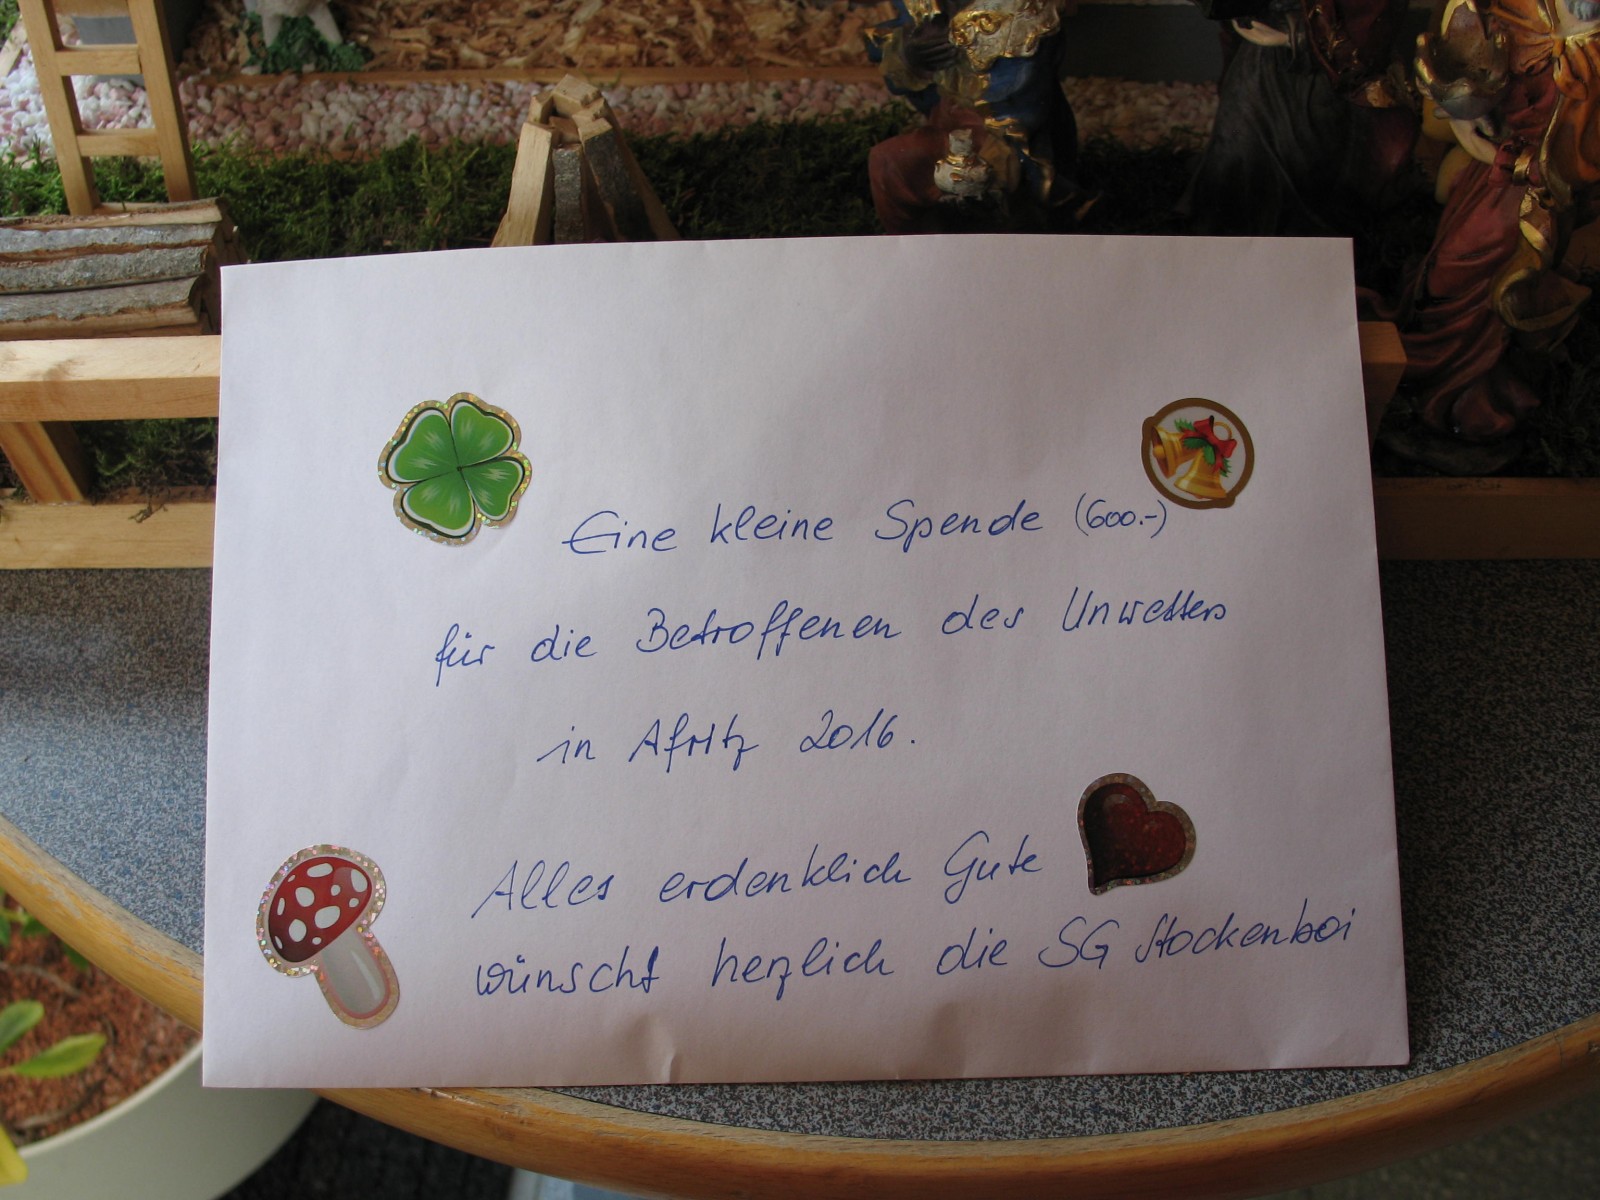 Eine kleine Spende (600.-)
für die Betroffenen des Unwetters
in Afritz 2016.
Alles erdenklich Gute
wünscht herzlich die SG Stockenboi